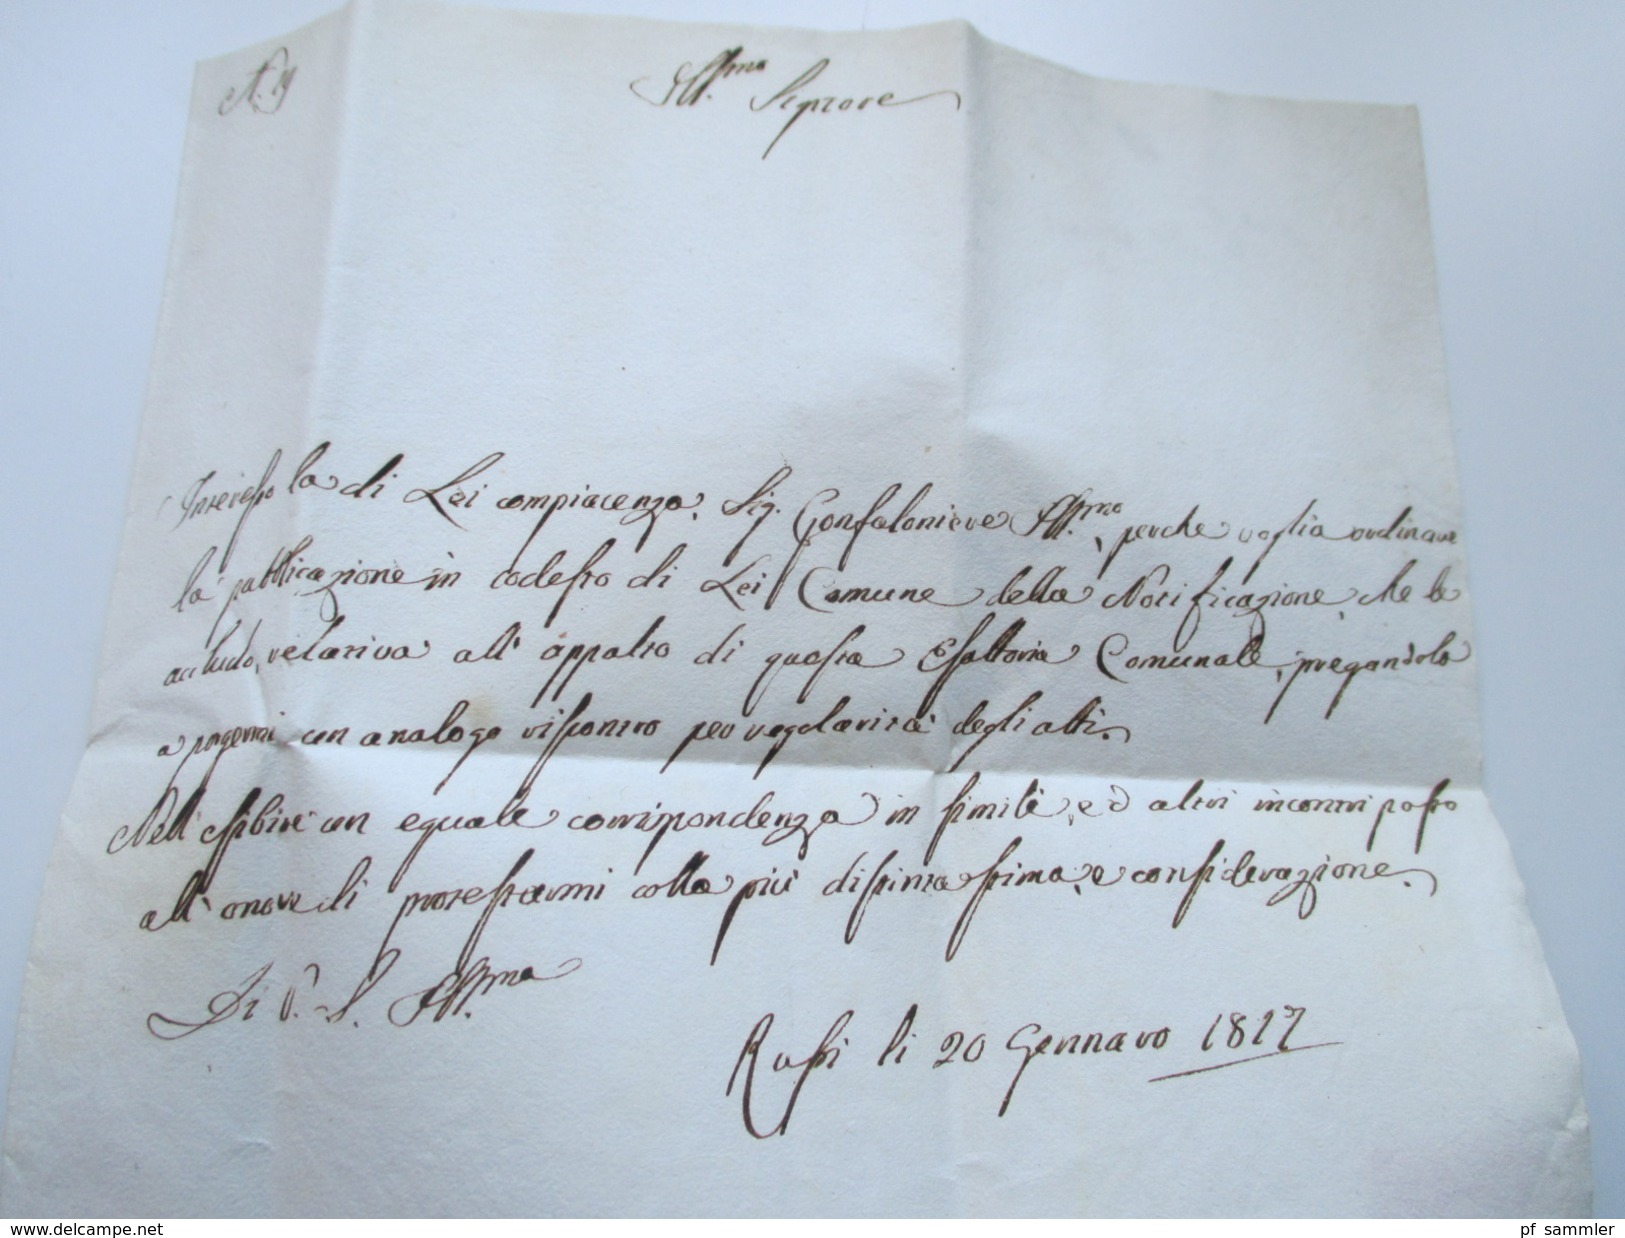 N. 19
Ill.mo Signore
Interesso la di Lei compiacenza, Sig. Gonfaloniere Ill.mo, perche voglia ordinare
la pubblicazione in codesto di Lei Comune della Notificazione, che le
accludo, relativa all' appalto di questa Esattoria Comunale, pregandolo
a porgermi un analogo risponso per regolarità degli atti.
Nell' esibire un eguale corrispondenza in simile, ed altri incontri posso
all' onore di protestarmi colla più distintissima, e considerazione.
Di V. S. Ill.ma
Russi li 20 Gennaro 1817
www.delcampe.net
pf_sammler